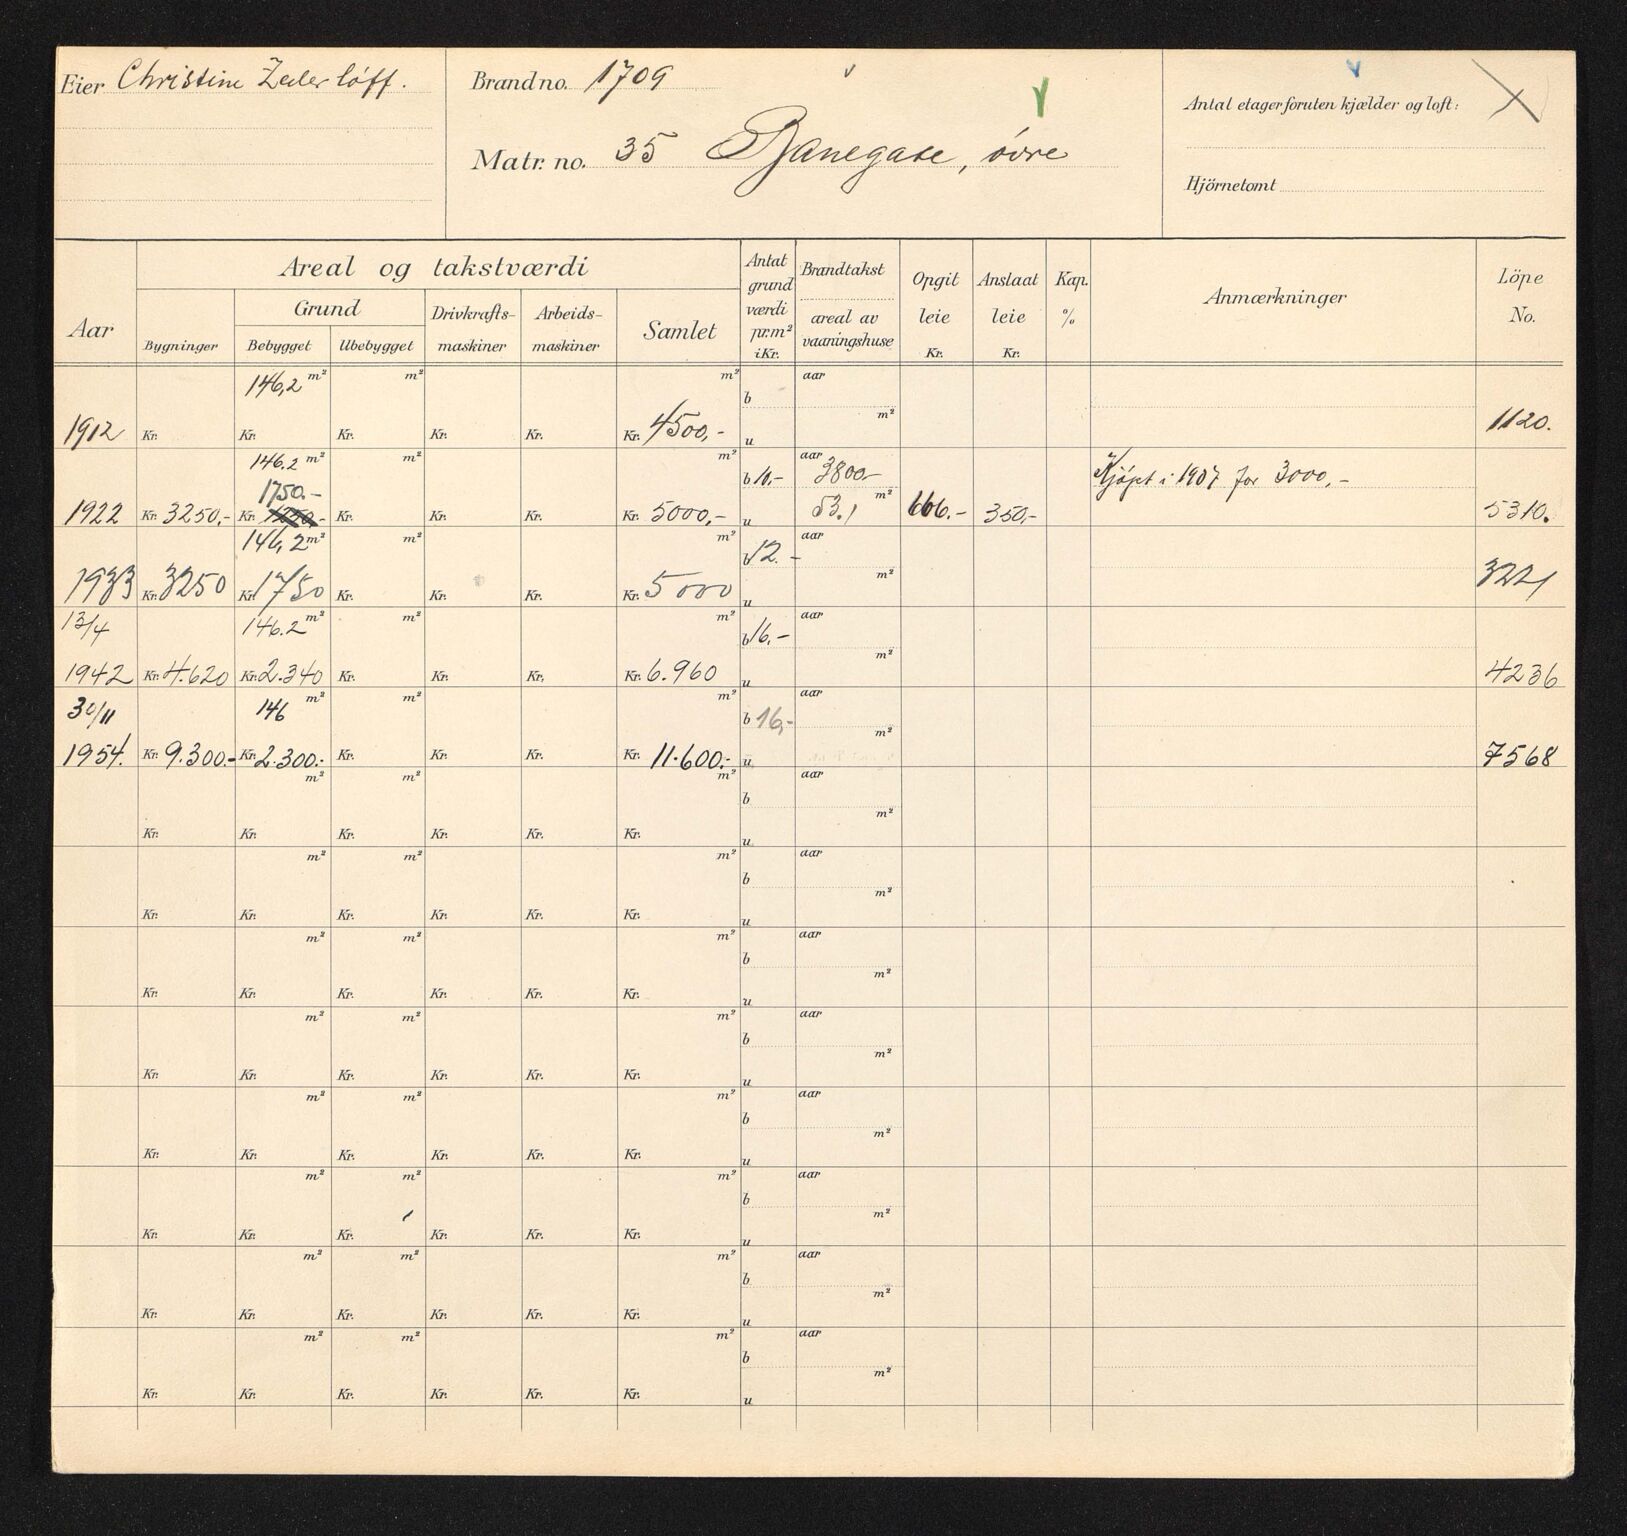 Eier Christine Zederløff.
Brand no. 1709
Matr. no. 35 Banegate, övre
Antal etager foruten kjælder og loft:
Hjörnetomt
Aar
Areal og takstværdi
Bygninger
Grund
Bebygget Ubebygget
Drivkrafts-
maskiner
Arbeids-
maskiner
Samlet
Antat
grund
værdi
pr.m²
i Kr.
Brandtakst
areal av
vaaningshuse
Opgit
leie
Kr.
Anslaat
leie
Kr.
Kap.
%
Anmærkninger
Löpe
No.
146,2 m² m² m² b aar
1912 Kr. Kr. Kr. Kr. Kr. Kr. 4500,- u m² 1120.
146.2 m² m² m² b 10,- aar 3800- Kjøpt i 1907 for 3000,-
1750.-
1922 Kr. 3250,- Kr. 1250,- Kr. Kr. Kr. Kr. 5000,- u 53.1 m² 666.- 350,- 5310.
146,2 m² m² m² b 12.- aar
1933 Kr. 3250 Kr. 1750 Kr. Kr. Kr. Kr. 5000 u m² 3221
13/4 146.2 m² m² m² b 16,- aar
1942 Kr. 4.620 Kr. 2.340 Kr. Kr. Kr. Kr. 6.960 u m² 4236
30/11 146 m² m² m² b 16,- aar
1954. Kr. 9.300.- Kr. 2.300.- Kr. Kr. Kr. Kr. 11.600.- u m² 7568
m² m² m² b aar
Kr. Kr. Kr. Kr. Kr. Kr. u m²
m² m² m² b aar
Kr. Kr. Kr. Kr. Kr. Kr. u m²
m² m² m² b aar
Kr. Kr. Kr. Kr. Kr. Kr. u m²
m² m² m² b aar
Kr. Kr. Kr. Kr. Kr. Kr. u m²
m² m² m² b aar
Kr. Kr. Kr. Kr. Kr. Kr. u m²
m² m² m² b aar
Kr. Kr. Kr. Kr. Kr. Kr. u m²
m² m² m² b aar
Kr. Kr. Kr. Kr. Kr. Kr. u m²
m² m² m² b aar
Kr. Kr. Kr. Kr. Kr. Kr. u m²